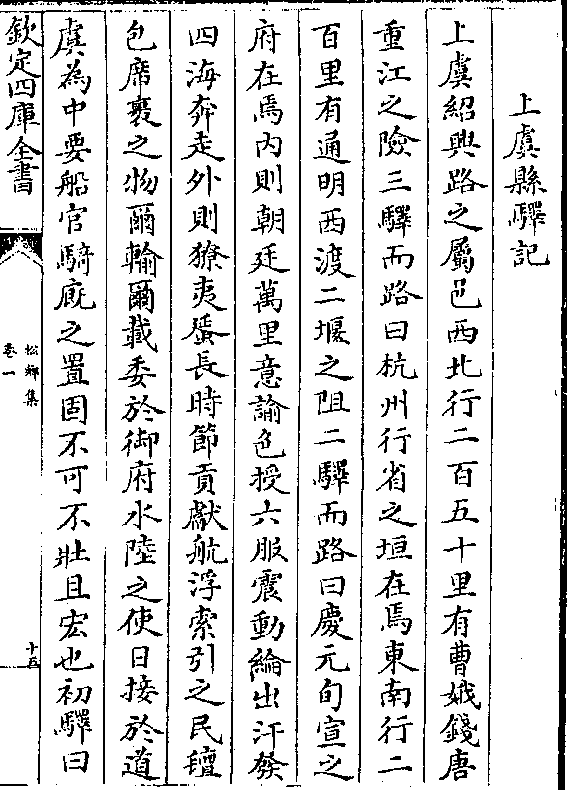 上虞縣驛記
上虞紹興路之屬邑西北行二百五十里有曹娥錢唐
重江之險三驛而路曰杭州行省之垣在焉東南行二
百里有通明西渡二堰之阻二驛而路曰慶元旬宣之
府在焉内則朝廷萬里意諭色授六服震動綸出汗發
四海奔走外則獠夷蜑長時節貢獻航浮索引之民璮
包席裹之物爾輸爾載委於御府水陸之使日接於道
虞為中要船官騎廐之置固不可不壯且宏也初驛曰
欽定四庫全書
松鄉集
卷一
十五